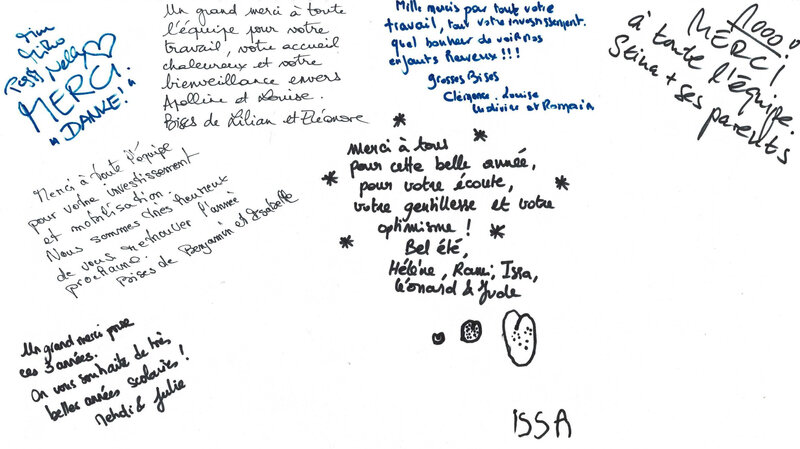 Tim
Miko
Peggy Nelly
MERCI.
"DANKE!"
Un grand merci à toute
l'équipe pour votre
travail, votre accueil
chaleureux et votre
bienveillance envers
Apolline et Louise.
Bises de Lilian et Eléonore
Mille mercis pour tout votre
travail, tout votre investissement.
quel bonheur de voir nos
enfants heureux !!!
grosses Bises
Clémence, Louise
Ludivine et Romain
1000
MERCI
à toute l'équipe.
+ ses parents
Merci à toute l'équipe
pour votre investissement
et mobilisation.
Nous sommes très heureux
de vous retrouver l'année
prochaine.
Bises de Benjamin et Isabelle
Merci à tous
pour cette belle année,
pour votre écoute,
votre gentillesse et votre
optimisme !
Bel été,
Hélène, Rami, Issa,
Léonard & Jude
ISSA
Un grand merci pour
ces 3 années.
On vous souhaite de très
belles années scolaires !
Mehdi & Julie